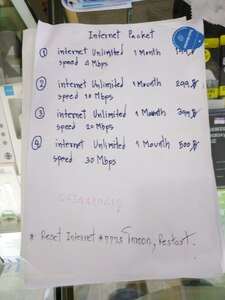 Internet Packet
① internet Unlimited 1 Month
speed 4 Mbps
② internet Unlimited 1 Mounth 299 ฿
speed 10 Mbps
③ internet Unlimited 1 Mounth 399 ฿
speed 20 Mbps
④ internet Unlimited 1 Mounth 500 ฿
speed 30 Mbps
* Reset Internet *7773 Restart